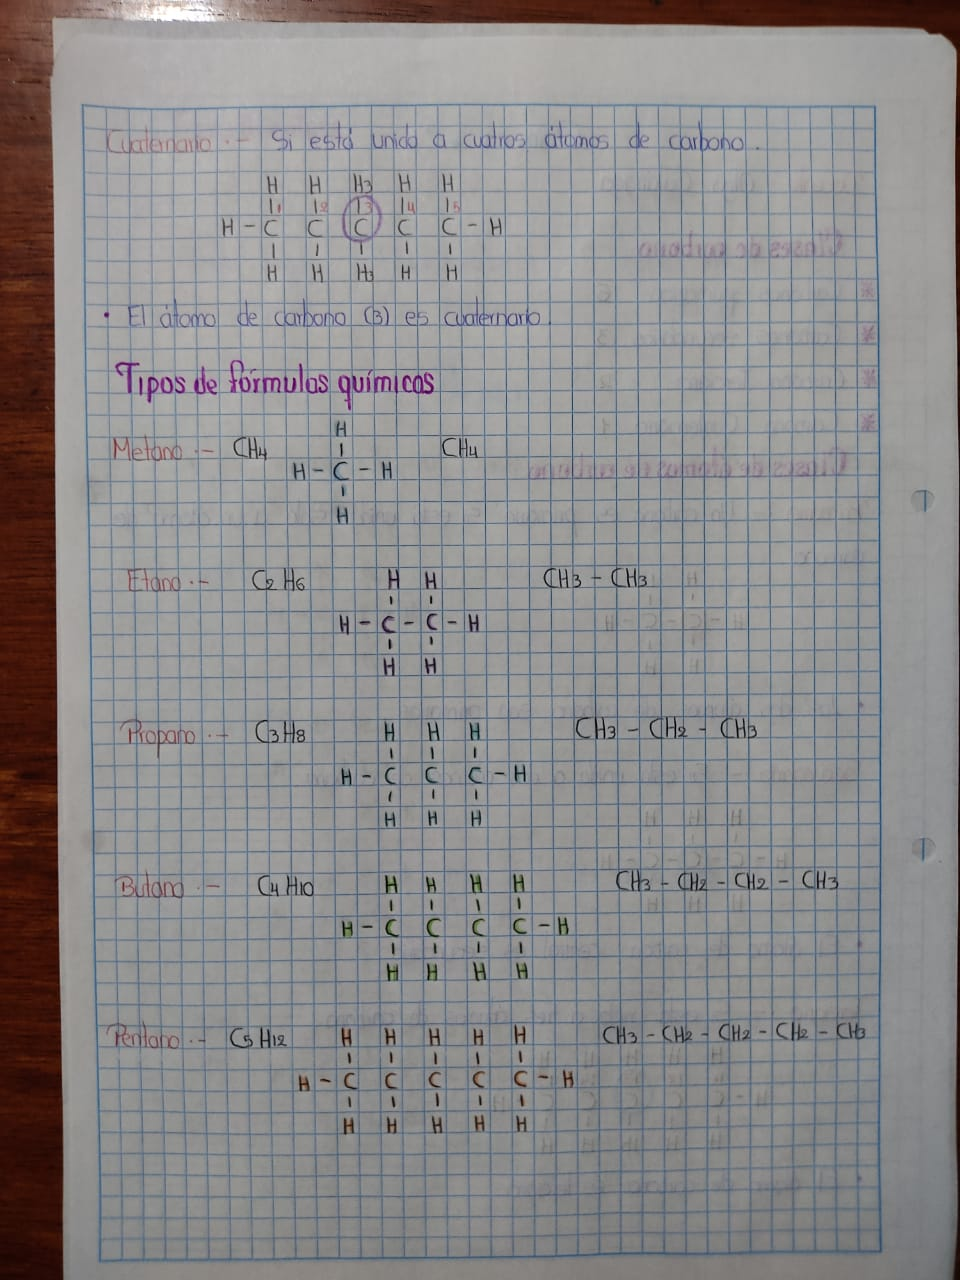 Cuaternario.- Si está unido a cuatros átomos de carbono.
H H H3 H H
1 2 3 4 5
H - C C C C C - H
H H H3 H H
• El átomo de carbono (3) es cuaternario.
Tipos de fórmulas químicas
H
Metano.- CH4 CH4
H - C - H
H
Etano.- C2H6 H H CH3 - CH3
H - C - C - H
H H
Propano.- C3H8 H H H CH3 - CH2 - CH3
H - C C C - H
H H H
Butano.- C4H10 H H H H CH3 - CH2 - CH2 - CH3
H - C C C C - H
H H H H
Pentano.- C5H12 H H H H H CH3 - CH2 - CH2 - CH2 - CH3
H - C C C C C - H
H H H H H